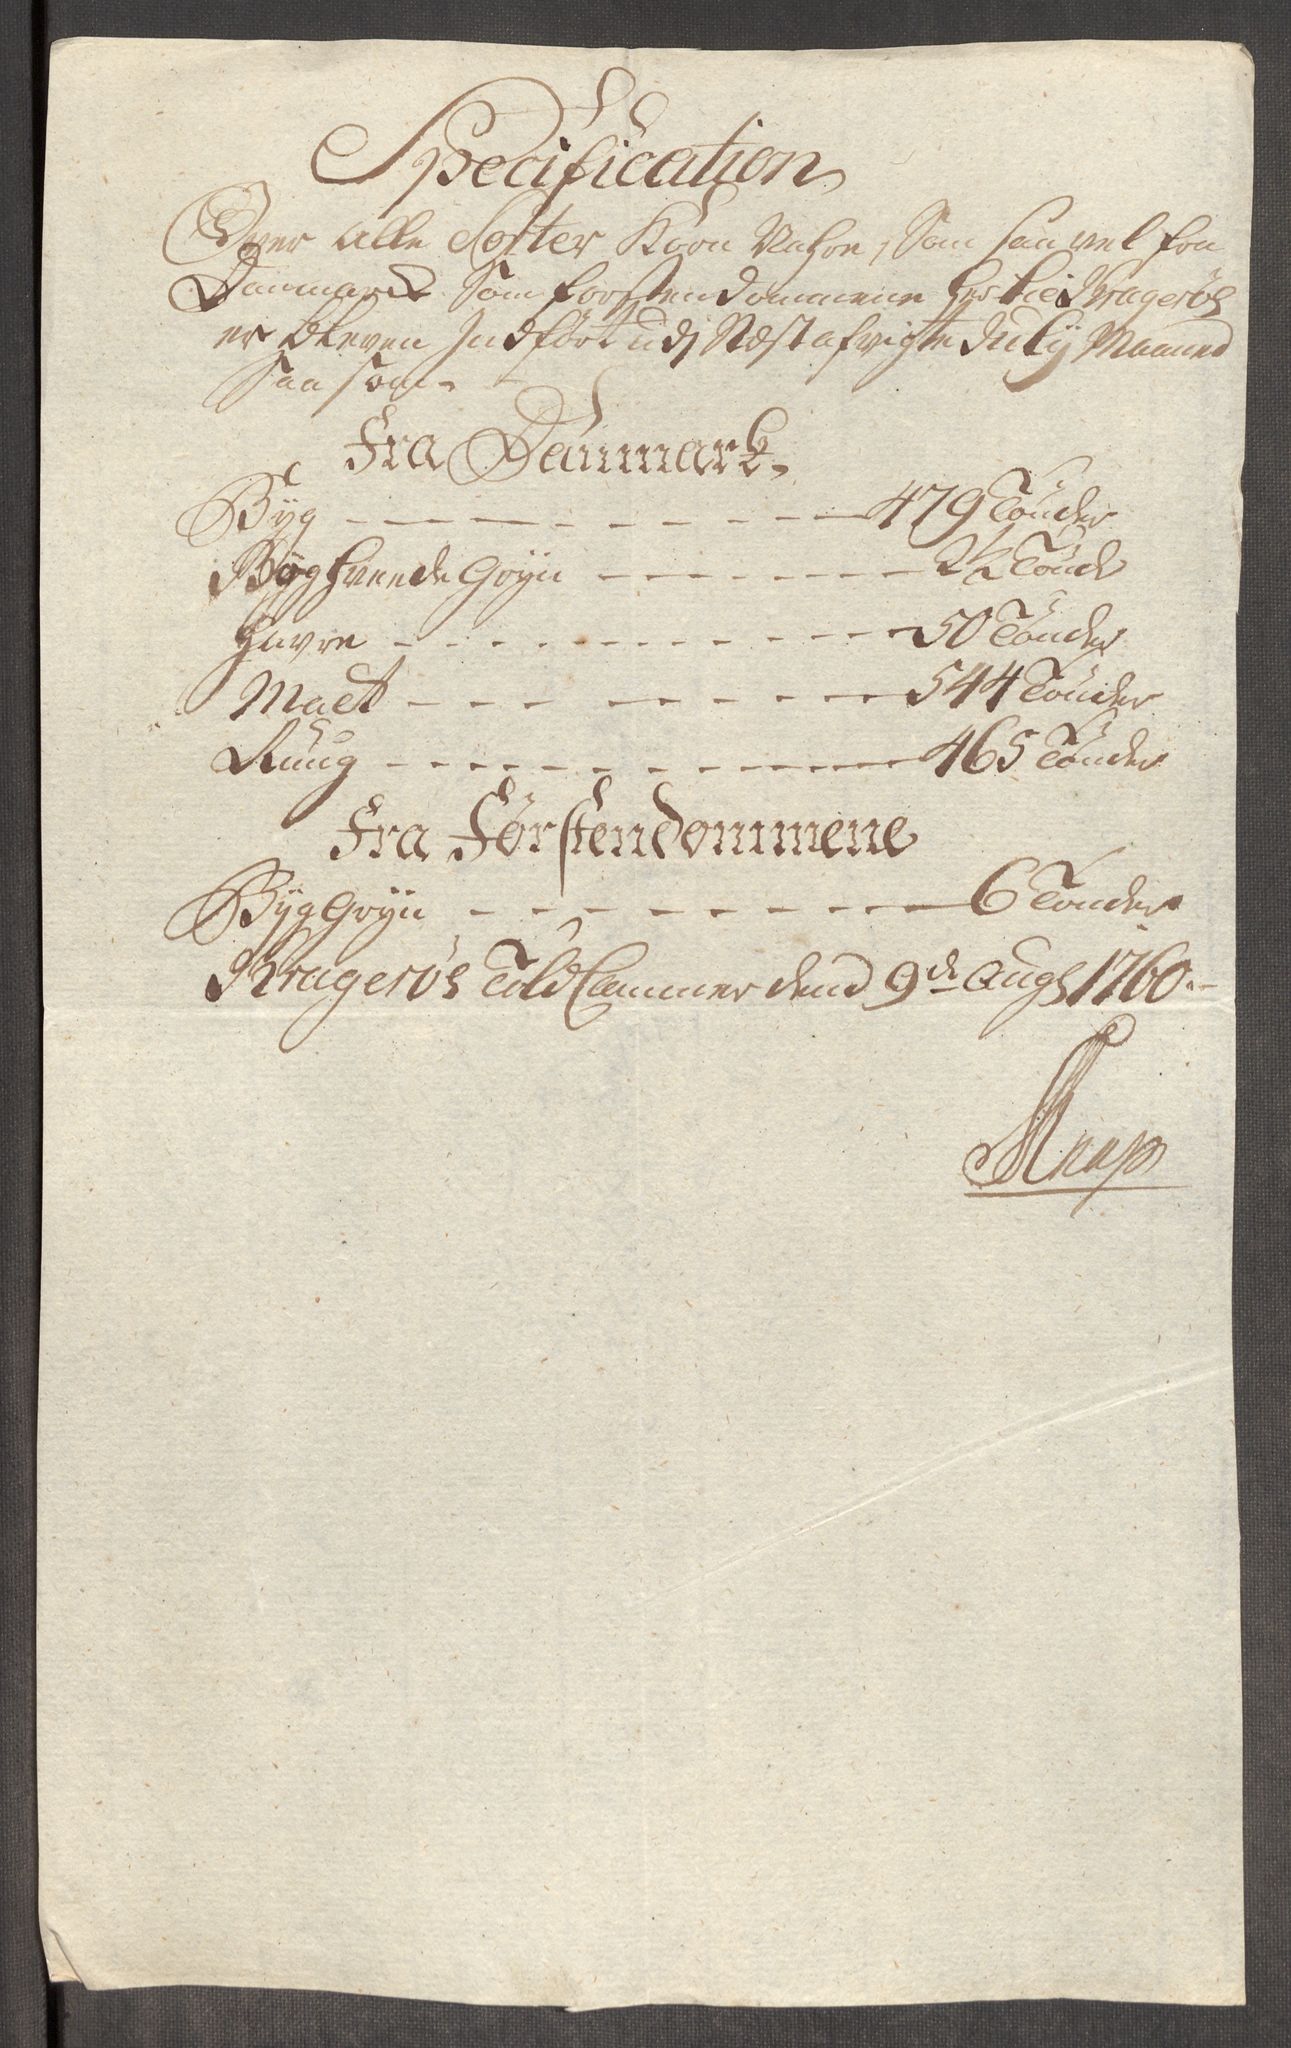 Specification
Over alle Sorter Korn Vahre, Som saa vel fra
Danmarck Som førstendommene her til Kragerøe
er bleven Indført udj Næst afvigte July Maaned
Saa som.
Fra Danmark.
Byg 479 Tønder
Byg hveede Gryn 2½ Tønde
Havre 50 Tønder
Malt 544 Tønder
Ruug 465 Tønder
Fra Førstendommene
Byg Gryn 6 Tønder
Kragerøe Told Cammer dend 9de Aug 1760.
Knap